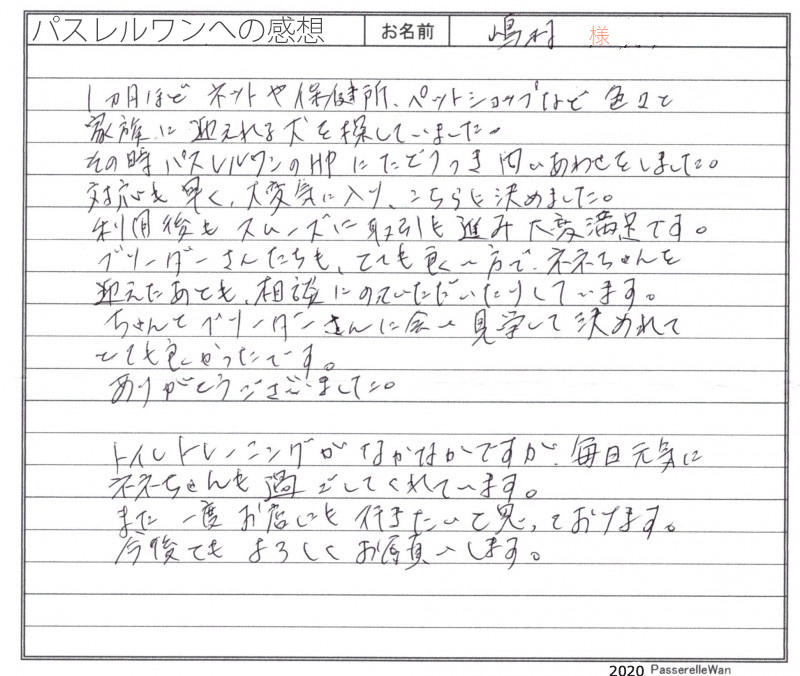 パスレルワンへの感想 お名前 嶋村 様
1ヵ月ほど ネットや保健所、ペットショップなど 色々と
家族に迎えれる犬を探していました。
その時 パスレルワンのHPにたどりつき 問いあわせをしました。
対応も早く、大変気に入り、こちらに決めました。
利用後も スムーズに取引も進み 大変満足です。
ブリーダーさんたちも、とても良い方で、ネネちゃんを
迎えたあとも、相談にのっていただいたりしています。
ちゃんとブリーダーさんに会い 見学して決めれて
とても良かったです。
ありがとうございました。
トイレトレーニングがなかなかですが、毎日元気に
ネネちゃんも過ごしてくれています。
また一度お店にも行きたいと思っております。
今後ともよろしくお願いします。
2020 PasserelleWan